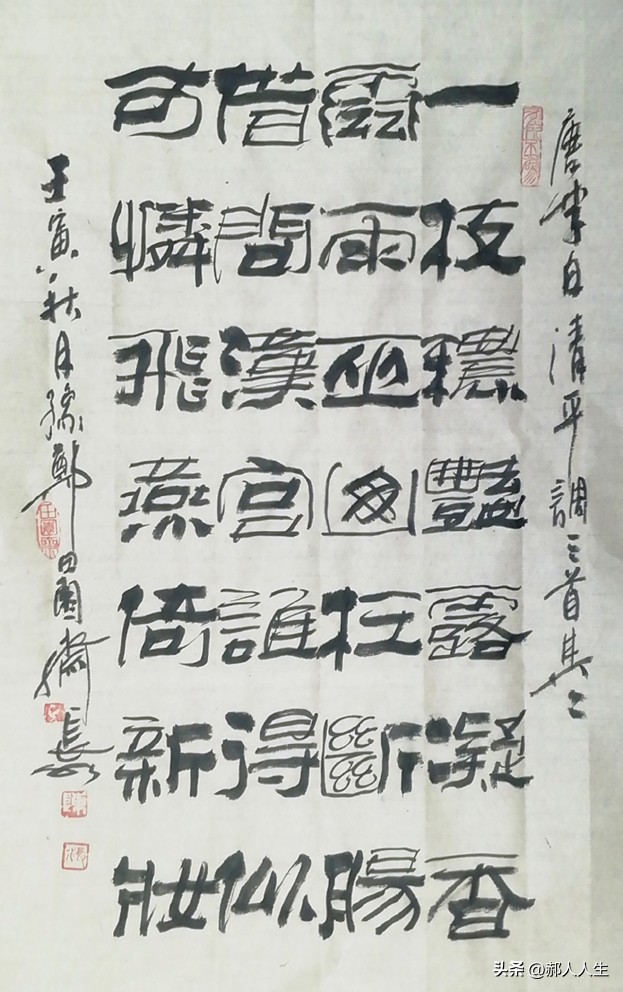 唐李白清平調三首其二
一枝穠豔露凝香
雲雨巫山枉斷腸
借問漢宮誰得似
可憐飛燕倚新妝
壬寅秋月鄭田園
头条 @郝人人生